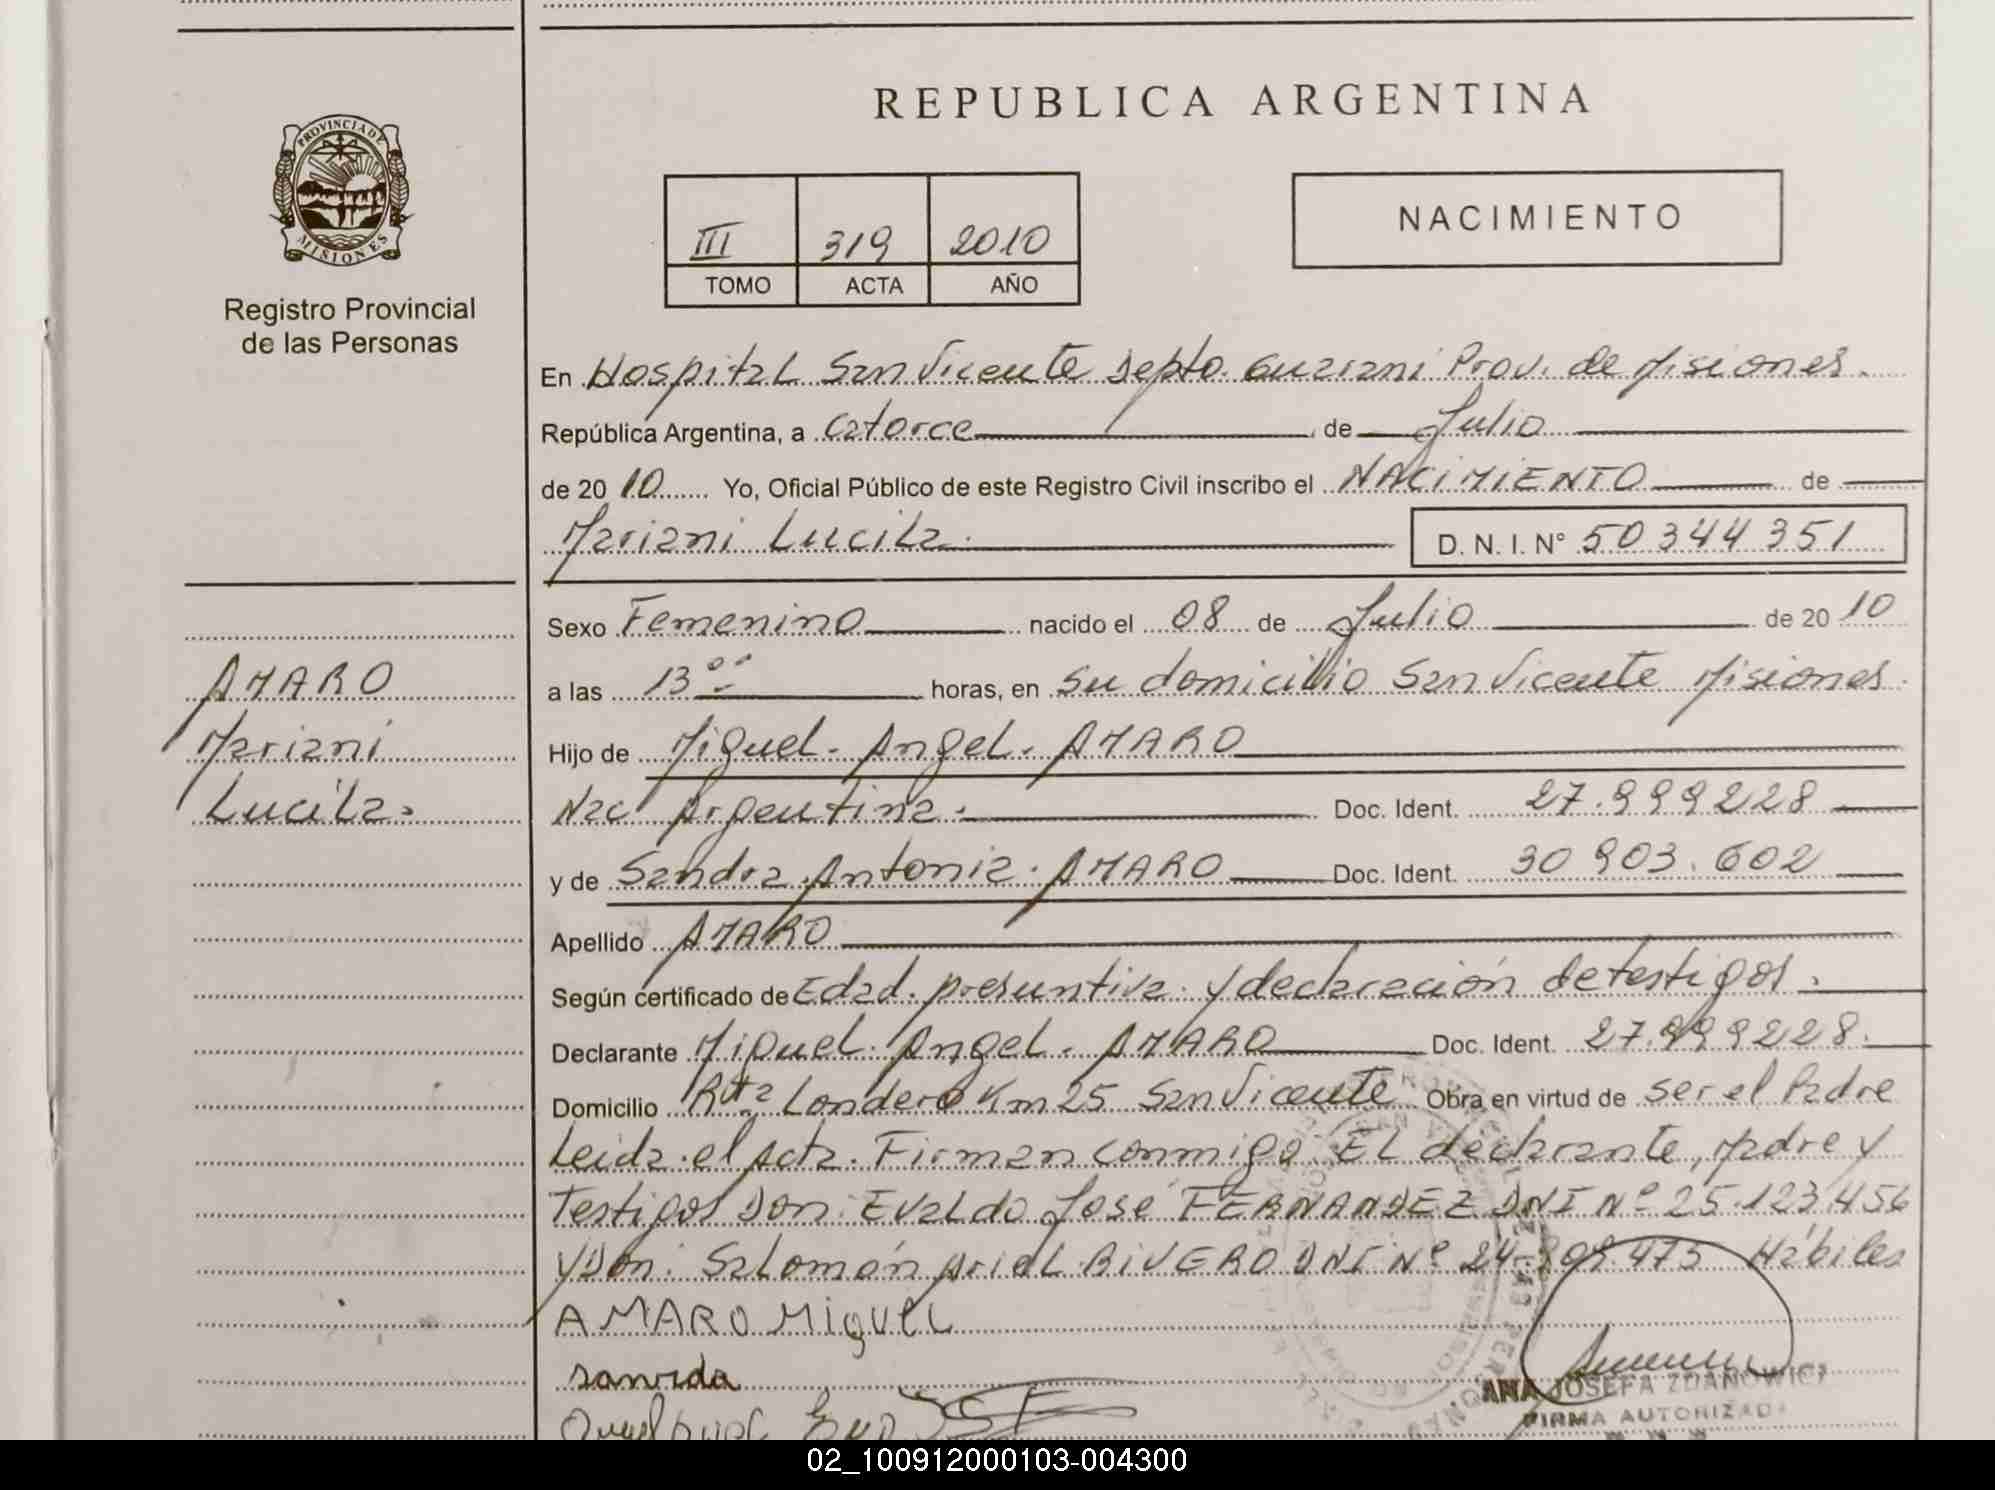 REPUBLICA ARGENTINA
PROVINCIA DE
MISIONES
Registro Provincial
de las Personas
III 319 2010
TOMO ACTA AÑO
NACIMIENTO
En Hospital San Vicente Depto. Guarani Prov. de Misiones.
República Argentina, a catorce de Julio
de 2010 Yo, Oficial Público de este Registro Civil inscribo el NACIMIENTO de
Mariani Lucila. D. N. I. N° 50344351
Sexo Femenino nacido el 08 de Julio de 2010
a las 13°° horas, en su domicilio San Vicente Misiones.
AMARO
Mariani
Lucila.
Hijo de Miguel. Angel. AMARO
Nac Argentina. Doc. Ident. 27.999228
y de Sandra Antonia. AMARO Doc. Ident. 30903.602
Apellido AMARO
Según certificado de Edad. presuntiva. y declaración de testigos.
Declarante Miguel. Angel. AMARO Doc. Ident. 27.999228.
Domicilio Rta Londero Km 25 San Vicente Obra en virtud de ser el Padre
Leida el Acta. Firman conmigo. El declarante, Madre y
testigos Don: Evaldo José FERNANDEZ DNI N° 25.123.456
y Don: Salomón Ariel RIVERO DNI N° 24. 475 Hábiles
AMARO MiguEL
ANA JOSEFA ZDANOWICZ
FIRMA AUTORIZADA
02_100912000103-004300